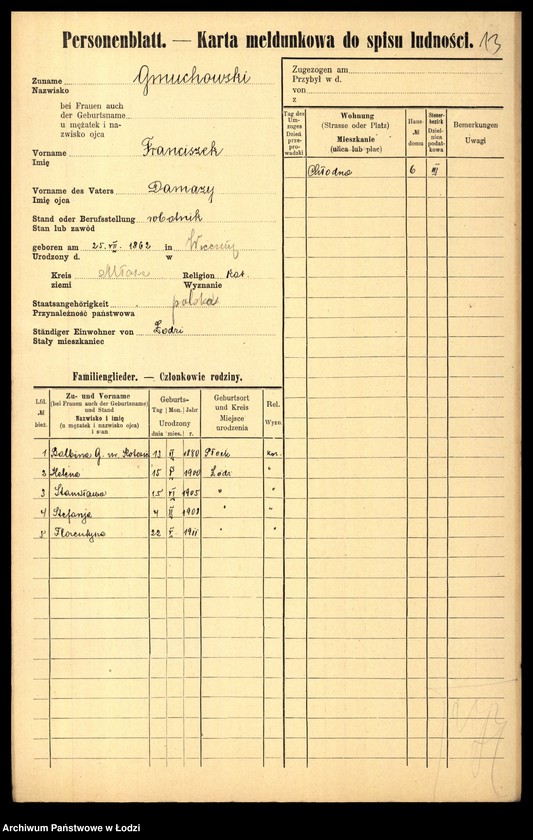 Personenblatt. — Karta meldunkowa do spisu ludności. 13
Zuname Gmuchowski
Nazwisko
bei Frauen auch
der Geburtsname
u mężatek i na-
zwisko ojca
Vorname Franciszek
Imię
Vorname des Vaters Damazy
Imię ojca
Stand oder Berufsstellung robotnik
Stan lub zawód
geboren am 25. VII. 1862 in
Urodzony d. w
Kreis Religion Kat.
ziemi Wyznanie
Staatsangehörigkeit polska
Przynależność państwowa
Ständiger Einwohner von Łodzi
Stały mieszkaniec
Zugezogen am
Przybył w d.
von
z
Tag des Um-zuges Dzień prze-prowadzki
Wohnung (Strasse oder Platz) Mieszkanie (ulica lub plac)
Haus- № domu
Steuer-bezirk Dziel-nica podat-kowa
Bemerkungen Uwagi
Chłodna 6 III
Familienglieder. — Członkowie rodziny.
Lfd. № bież.
Zu- und Vorname (bei Frauen auch der Geburtsname) und Stand Nazwisko i imię (u mężatek i nazwisko ojca) i stan
Geburts- Tag | Mon. | Jahr Urodzony dnia | mies. | r.
Geburtsort und Kreis Miejsce urodzenia
Rel. Wyzn.
1 Balbina G. 13 II 1880 Płock Kat.
2 Helena 15 1900 Łódź "
3 Stanisława 15 VI 1905 " "
4 Stefanja 4 III 1908 " "
5 Florentyna 22 V 1911 " "
Archiwum Państwowe w Łodzi